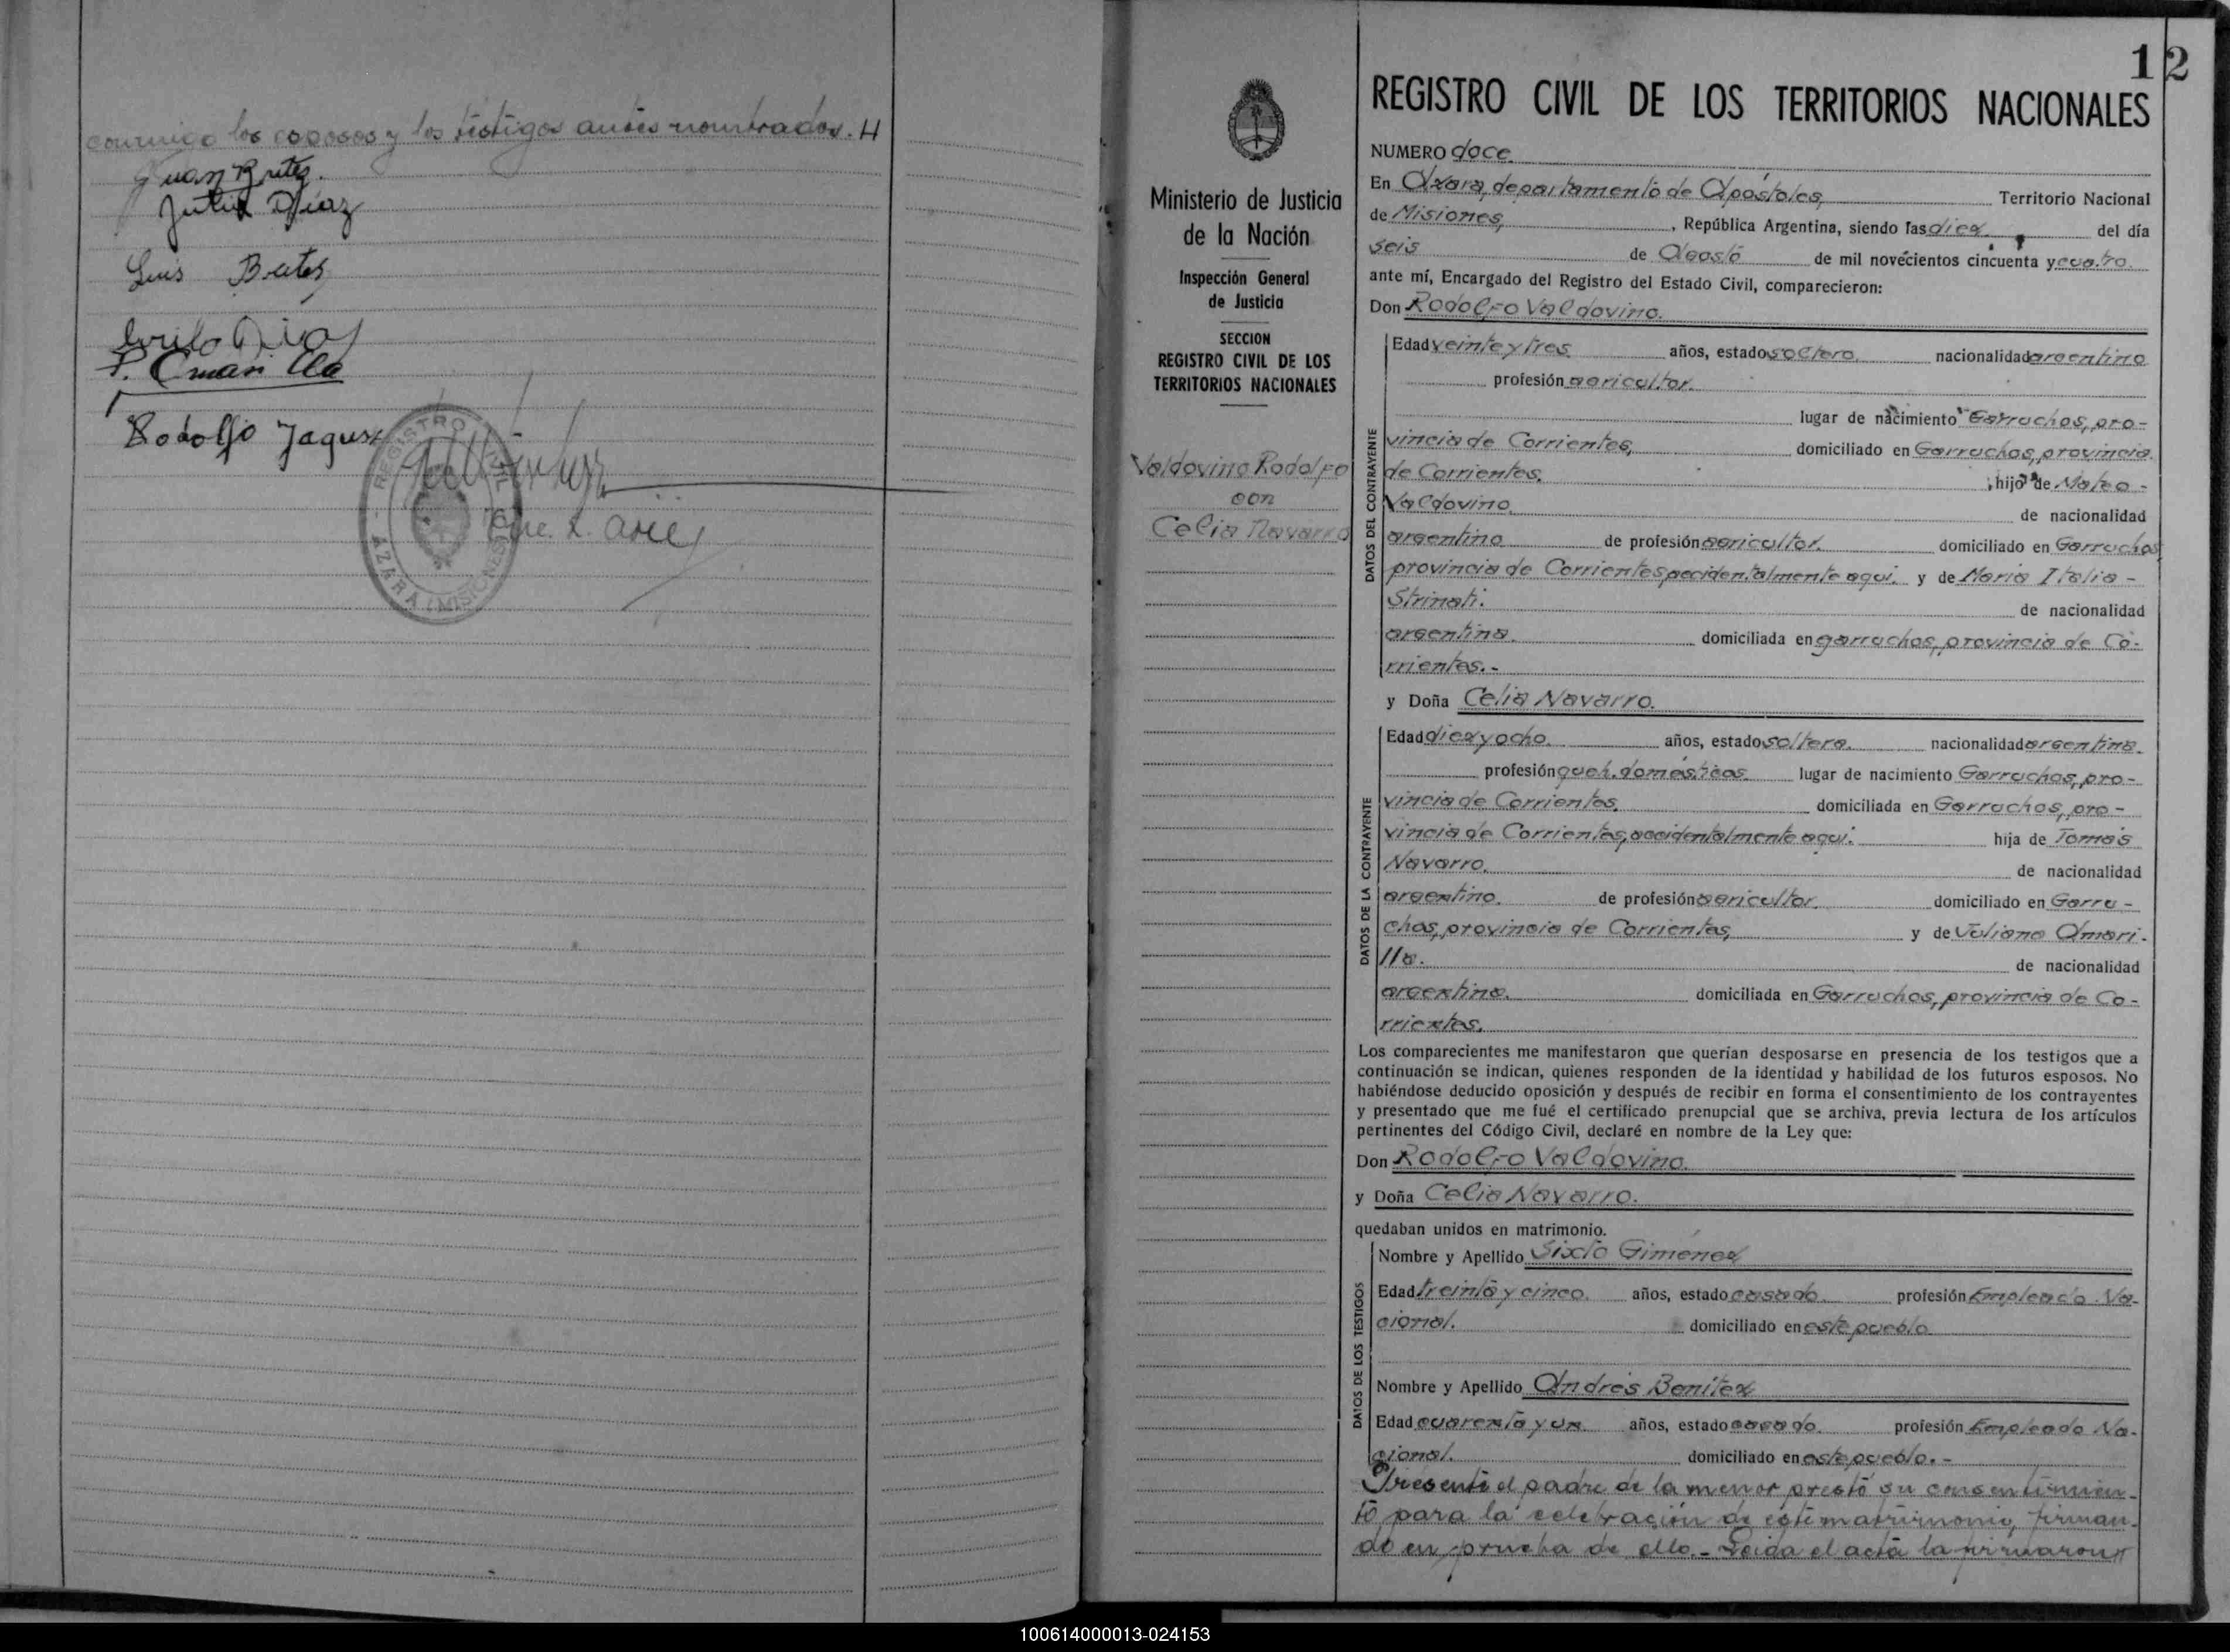 conmigo los esposos y los testigos antes nombrados. H
Juan Brites.
Julia Díaz
Luis Brites
Cirilo Diaz
P. Amarilla
Rodolfo Jagus
REGISTRO CIVIL
AZARA (MISIONES)
12
REGISTRO CIVIL DE LOS TERRITORIOS NACIONALES
Ministerio de Justicia
de la Nación
Inspección General
de Justicia
SECCION
REGISTRO CIVIL DE LOS
TERRITORIOS NACIONALES
Valdovino Rodolfo
con
Celia Navarro
NUMERO doce.
En Azara, departamento de Apóstoles, Territorio Nacional
de Misiones, , República Argentina, siendo las diez del día
seis de Agosto de mil novecientos cincuenta y cuatro.
ante mí, Encargado del Registro del Estado Civil, comparecieron:
Don Rodolfo Valdovino.
DATOS DEL CONTRAYENTE
Edad veinte y tres años, estado soltero nacionalidad argentino
profesión agricultor.
lugar de nacimiento Garruchos, pro-
vincia de Corrientes, domiciliado en Garruchos, provincia
de Corrientes. , hijo de Mateo -
Valdovino. de nacionalidad
argentino de profesión agricultor. domiciliado en Garruchos
provincia de Corrientes, accidentalmente aquí. y de María Italia -
Strinati. de nacionalidad
argentina. domiciliada en garruchos, provincia de Co-
rrientes.-
y Doña Celia Navarro.
DATOS DE LA CONTRAYENTE
Edad diez y ocho. años, estado soltera. nacionalidad argentina.
profesión queh. domésticos lugar de nacimiento Garruchos, pro-
vincia de Corrientes. domiciliada en Garruchos, pro-
vincia de Corrientes, accidentalmente aquí. hija de Tomás
Navarro. de nacionalidad
argentino. de profesión agricultor. domiciliado en Garru-
chos, provincia de Corrientes, y de Juliana Amari-
lla. de nacionalidad
argentina. domiciliada en Garruchos, provincia de Co-
rrientes.
Los comparecientes me manifestaron que querían desposarse en presencia de los testigos que a
continuación se indican, quienes responden de la identidad y habilidad de los futuros esposos. No
habiéndose deducido oposición y después de recibir en forma el consentimiento de los contrayentes
y presentado que me fué el certificado prenupcial que se archiva, previa lectura de los artículos
pertinentes del Código Civil, declaré en nombre de la Ley que:
Don Rodolfo Valdovino.
y Doña Celia Navarro.
quedaban unidos en matrimonio.
DATOS DE LOS TESTIGOS
Nombre y Apellido Sixto Giménez
Edad treinta y cinco. años, estado casado. profesión Empleado Na-
cional. domiciliado en este pueblo.
Nombre y Apellido Andrés Benitez
Edad cuarenta y un años, estado casado. profesión Empleado Na-
cional. domiciliado en este pueblo.-
Presente el padre de la menor prestó su consentimien-
to para la celebración de este matrimonio, firman-
do en prueba de ello.- Leida el acta la firmaron
100614000013-024153